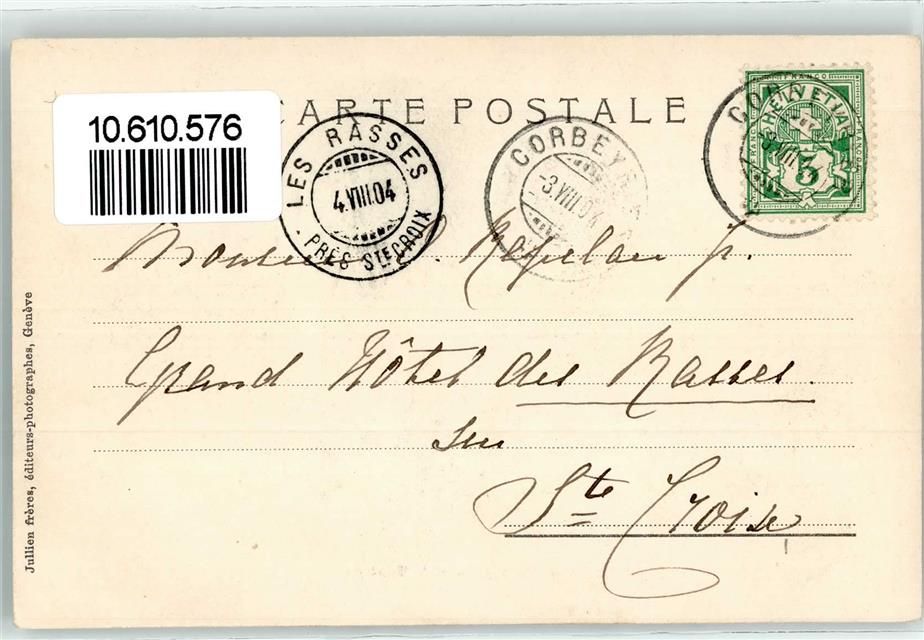 CARTE POSTALE
10.610.576
LES RASSES
4.VIII.04
PRÈS STE CROIX
CORBEY
-3.VIII.04
FRANCO
HELVETIA
5
Monsieur
Grand Hôtel des Rasses.
sur
Ste Croix
Jullien frères, éditeurs-photographes, Genève